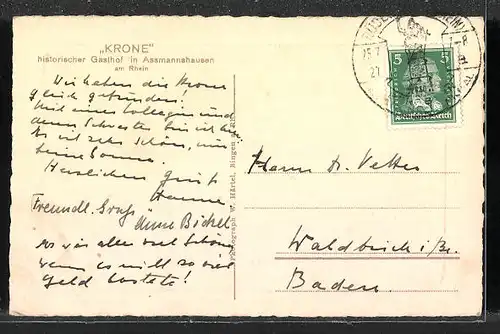 „KRONE"
historischer Gasthof in Assmannshausen
am Rhein
Wir haben die Krone
gleich gefunden.
Mit einer Kollegin und
deren Schwester bin ich hier
Es ist sehr schön, nur
keine Sonne.
Herzlichen Gruß
Hanne
Freundl. Gruß
Anna Bickel
Es wär alles viel schöner
wenn es nicht so viel
Geld kostete!
W. Härtel, Bingen a. Rh.
5
5
Deutsches Reich
27
Herrn Dr. Vetter
Waldkirch i/Br.
Baden.